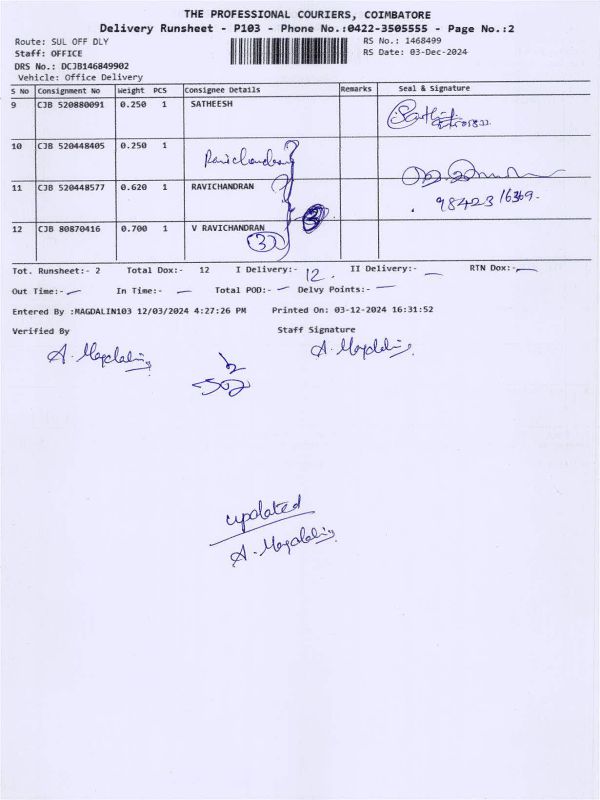 THE PROFESSIONAL COURIERS, COIMBATORE
Delivery Runsheet - P103 - Phone No.:0422-3505555 - Page No.:2
Route: SUL OFF DLY RS No.: 1468499
Staff: OFFICE RS Date: 03-Dec-2024
DRS No.: DCJB146849902
Vehicle: Office Delivery
S No Consignment No Weight PCS Consignee Details Remarks Seal & Signature
9 CJB 520880091 0.250 1 SATHEESH
10 CJB 520448405 0.250 1 Ravichandran
11 CJB 520448577 0.620 1 RAVICHANDRAN
98423 16369.
12 CJB 80870416 0.700 1 V RAVICHANDRAN
3
Tot. Runsheet:- 2 Total Dox:- 12 I Delivery:- 12. II Delivery:- — RTN Dox:- —
Out Time:- — In Time:- — Total POD:- — Delvy Points:- —
Entered By :MAGDALIN103 12/03/2024 4:27:26 PM Printed On: 03-12-2024 16:31:52
Verified By Staff Signature
A. Magdalin A. Magdalin
updated
A. Magdalin